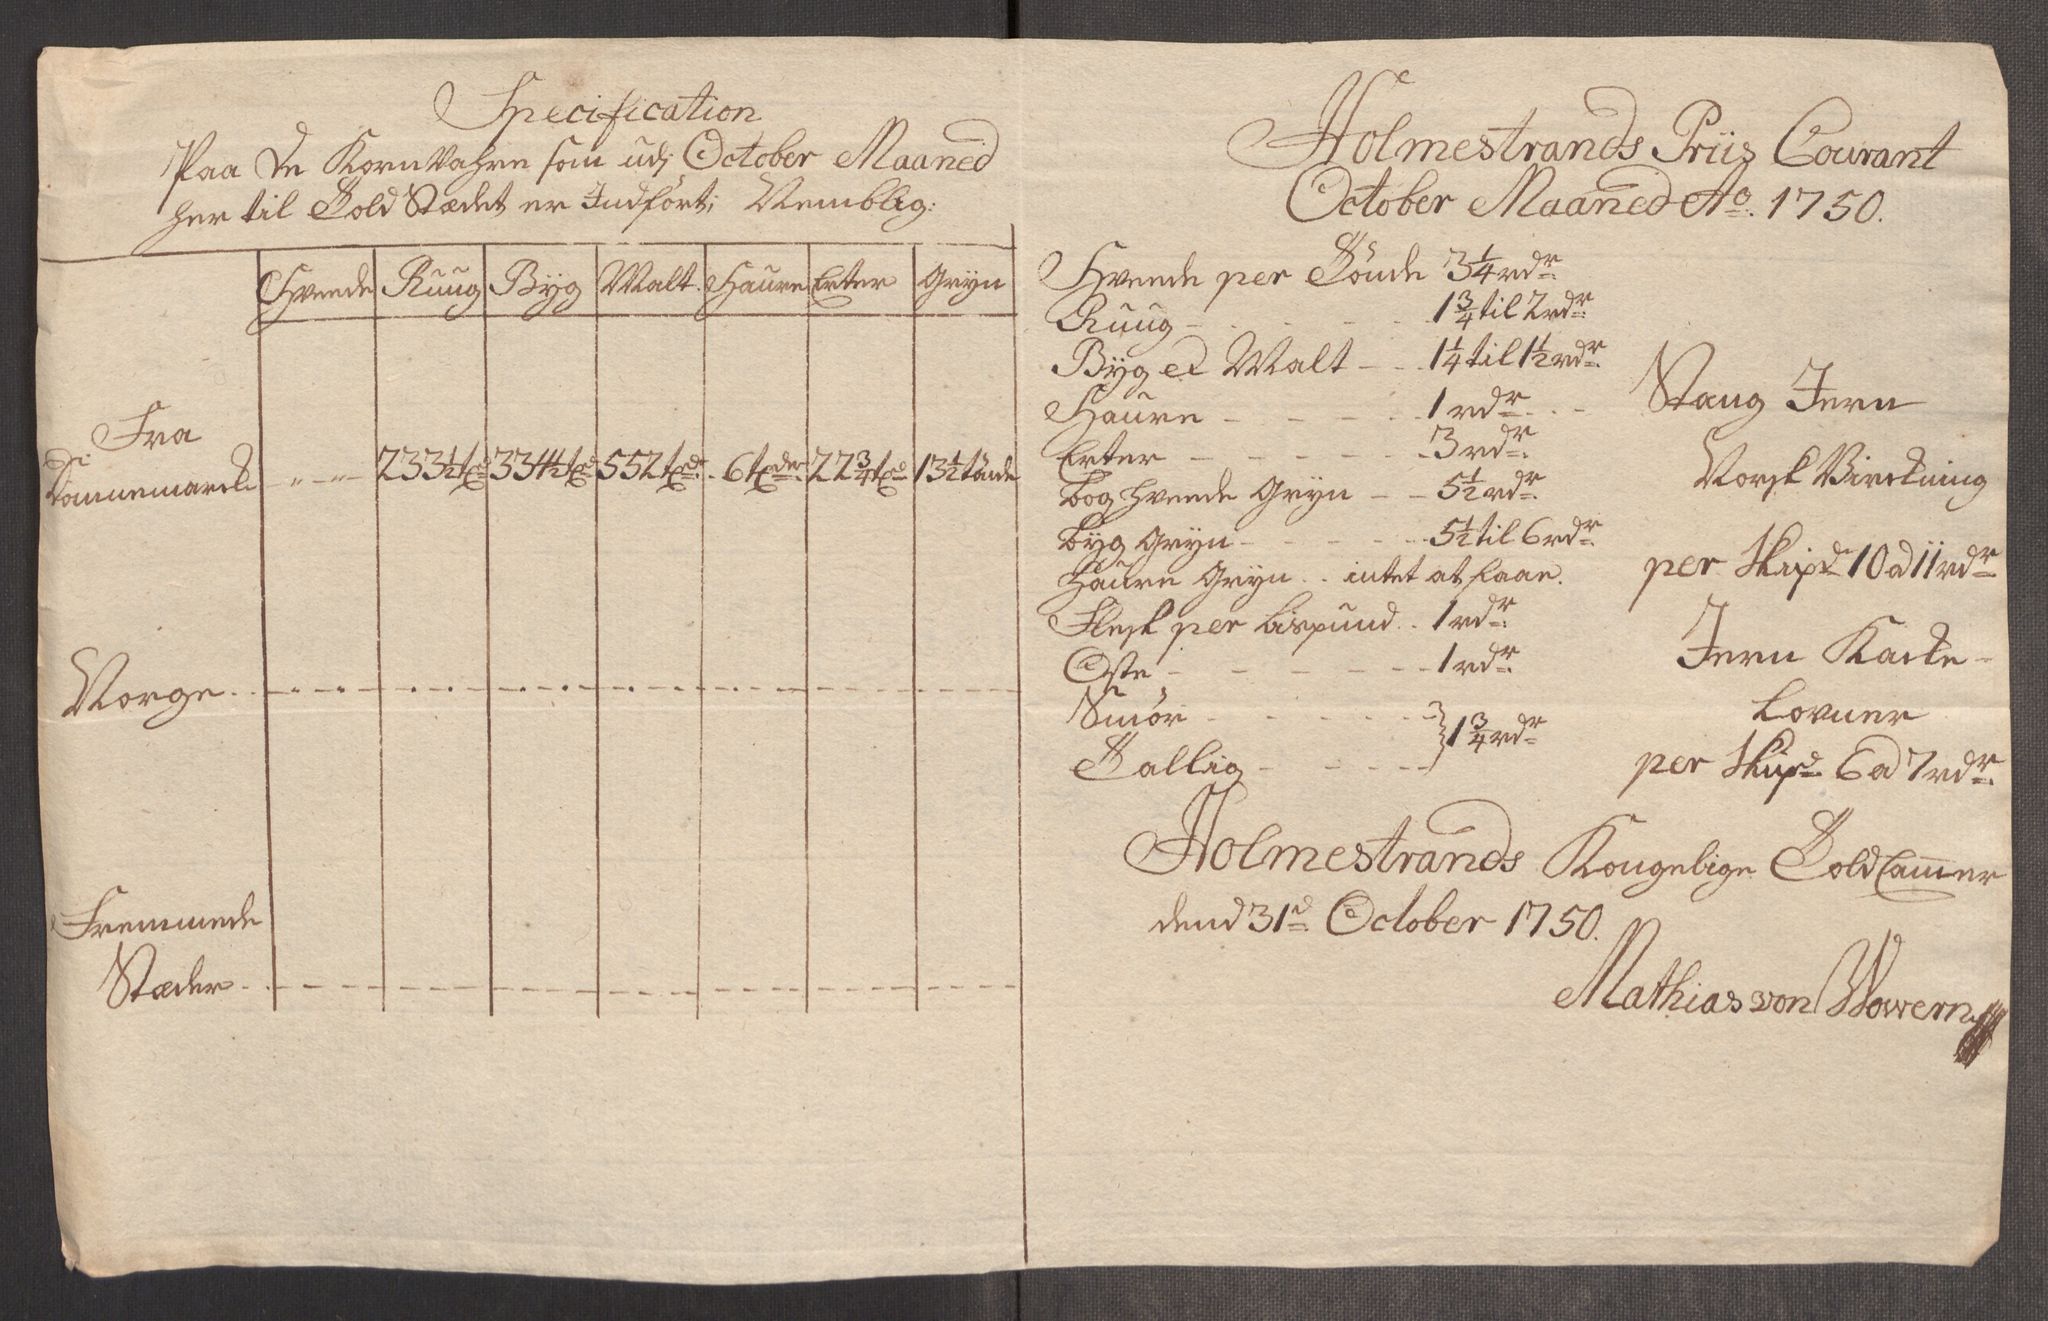 Specification
Paa de Korn Vahre som udj October Maaned
her til Told Stædet er Indført; Nemblig:
Hvede Ruug Byg Malt Haure Erter Gryn
Fra
Dannemarck 233½ txd 334½ txd 552 txdr 6 txder 22¾ txd 13½ tønde
Norge
Fremmede
Stæder
Holmestrands Priis Courant
October Maaned Ao. 1750.
Hvede per Tönde 3¼ rdr
Ruug 1¾ til 2 rdr
Byg et Malt 1¼ til 1½ rdr
Haure 1 rdr
Erter 3 rdr
bog hvede Gryn 5½ rdr
byg Gryn 5½ til 6 rdr
Haure Gryn intet at faae.
Flesk per Lispund 1 rdr
Oste 1 rdr
Smør
Tallig } 1¾ rdr
Stang Jern
Norsk Virckning
per Skipd 10 a 11 rdr
Jern Kacke-
lovner
per Skipd 6 a 7 rdr
Holmestrands Kongelige Told Cammer
dend 31d October 1750.
Mathias von Wowern